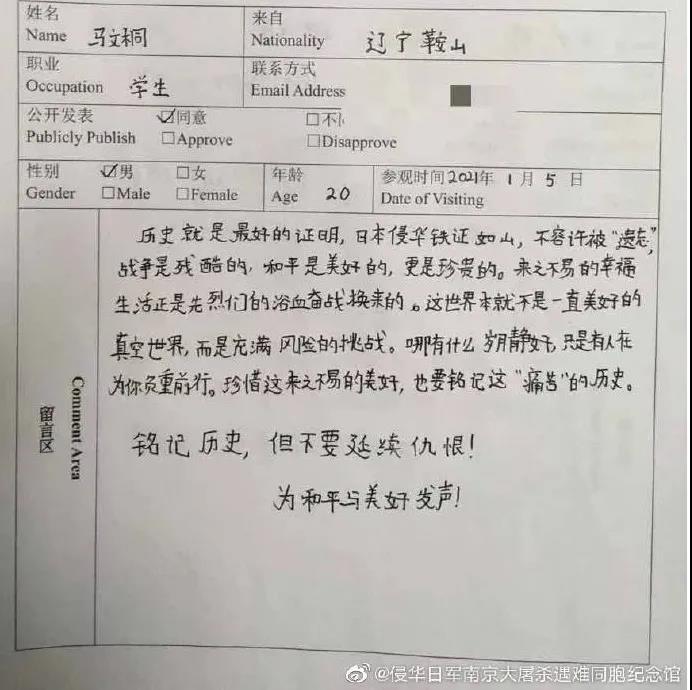 姓名 来自
Name 马文桐 Nationality 辽宁鞍山
职业 联系方式
Occupation 学生 Email Address
公开发表 ☑同意 □不
Publicly Publish □Approve □Disapprove
性别 ☑男 □女 年龄 参观时间 2021年 1月 5日
Gender □Male □Female Age 20 Date of Visiting
留言区
Comment Area
历史就是最好的证明,日本侵华铁证如山,不容许被“遗忘”,
战争是残酷的,和平是美好的,更是珍贵的。来之不易的幸福
生活正是先烈们的浴血奋战换来的。这世界本就不是一直美好的
真空世界,而是充满风险的挑战。哪有什么岁月静好,只是有人在
为你负重前行。珍惜这来之不易的美好,也要铭记这“痛苦”的历史。
铭记历史,但不要延续仇恨!
为和平与美好发声!
@侵华日军南京大屠杀遇难同胞纪念馆